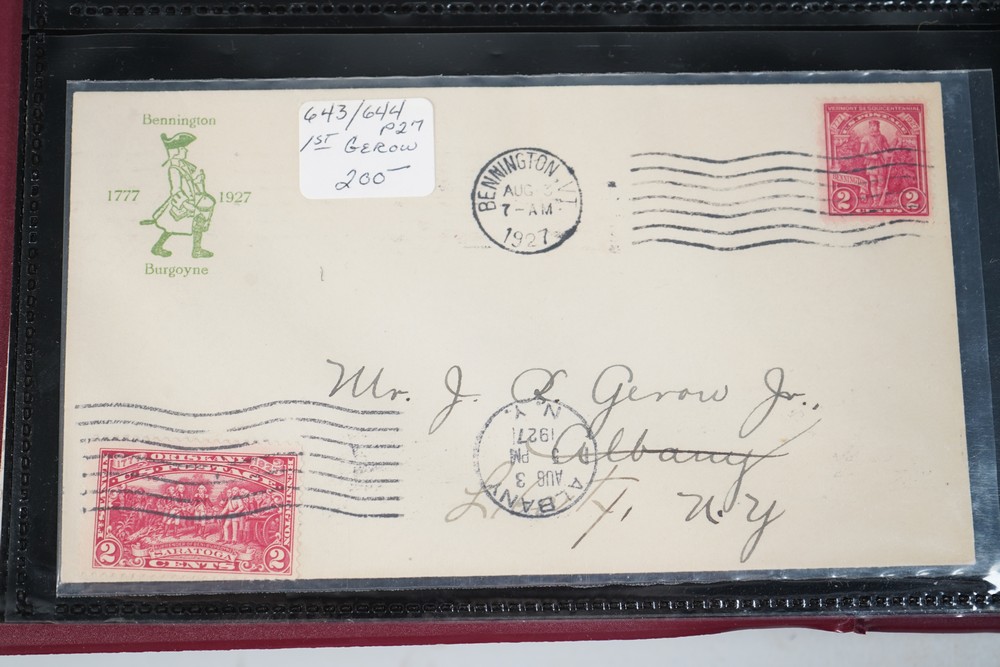 Bennington
1777 1927
Burgoyne
643/644
P27
1ST GEROW
200—
BENNINGTON, VT.
AUG 3
7-AM
1927
VERMONT SESQUICENTENNIAL
U.S. POSTAGE
BENNINGTON
2 CENTS 2
Mr. J. R. Gerow Jr.,
Albany
N.Y.
ALBANY
N.Y.
AUG 3
PM
1927
1777 ORISKANY 1927
U.S. POSTAGE
BENNINGTON
SARATOGA
2 CENTS 2